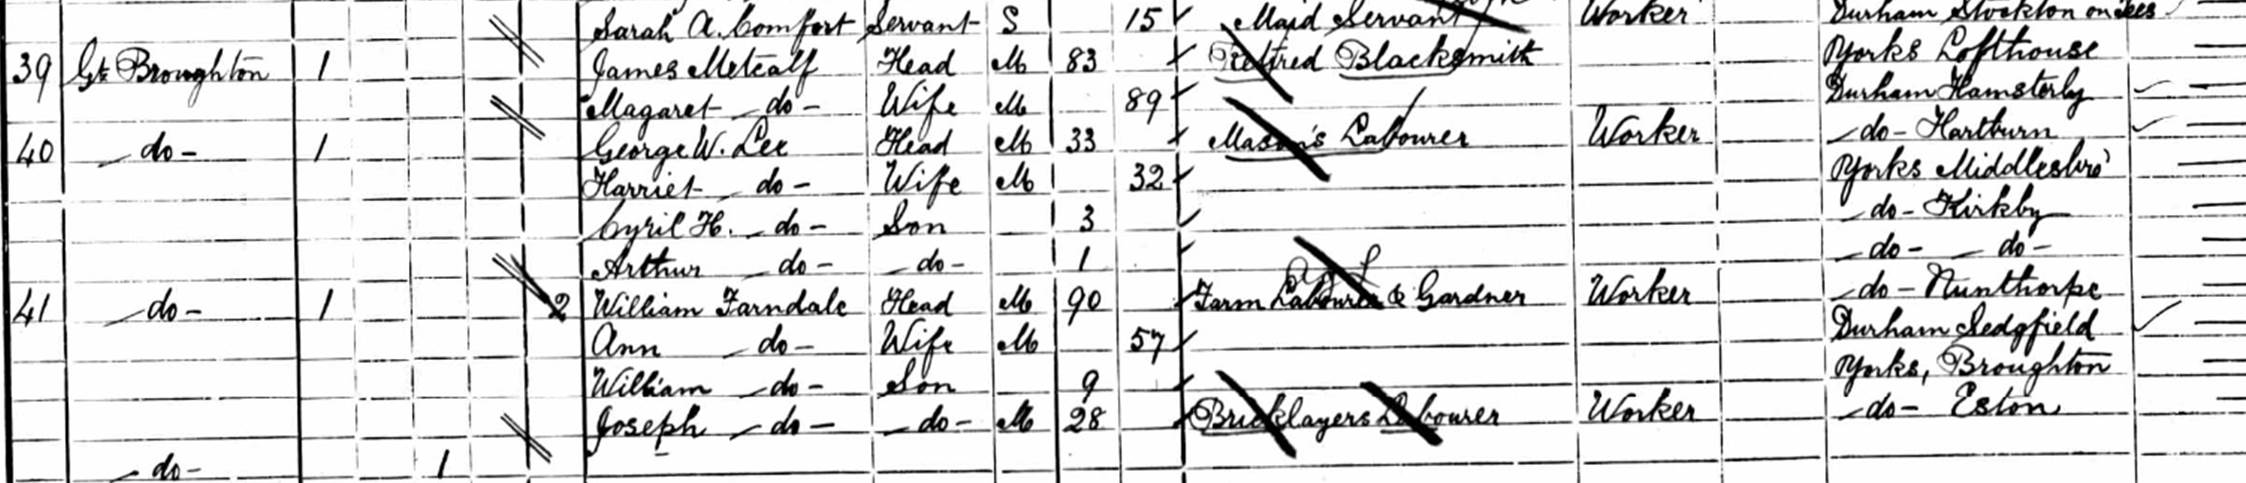 Sarah A. Comfort Servant S 15 Maid Servant Worker Durham Stockton on Tees
39 Gt Broughton 1 James Metcalf Head M 83 Retired Blacksmith Yorks Lofthouse
Magaret -do- Wife M 89 Durham Hamsterly
40 -do- 1 George W. Lee Head M 33 Mason's Labourer Worker -do- Hartburn
Harriet -do- Wife M 32 Yorks Middlesbro'
Cyril H. -do- Son 3 -do- Kirkby
Arthur -do- -do- 1 -do- -do-
Ag L
41 -do- 1 2 William Farndale Head M 90 Farm Labourer & Gardner Worker -do- Nunthorpe
Ann -do- Wife M 57 Durham Sedgfield
William -do- Son 9 Yorks, Broughton
Joseph -do- -do- M 28 Bricklayers Labourer Worker -do- Eston
-do- 1